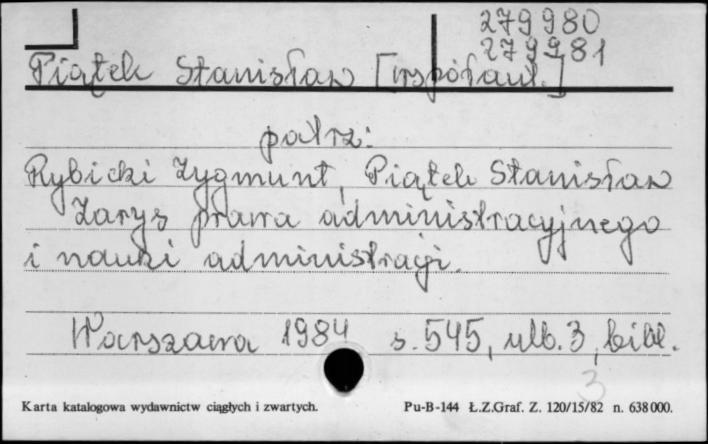 279980
279981
Piątek Stanisław [współaut.]
patrz:
Rybicki Zygmunt, Piątek Stanisław
Zarys prawa administracyjnego
i nauki administracji.
Warszawa 1984 s. 545, ulb. 3, bibl.
3
Karta katalogowa wydawnictw ciągłych i zwartych. Pu-B-144 Ł.Z.Graf. Z. 120/15/82 n. 638000.